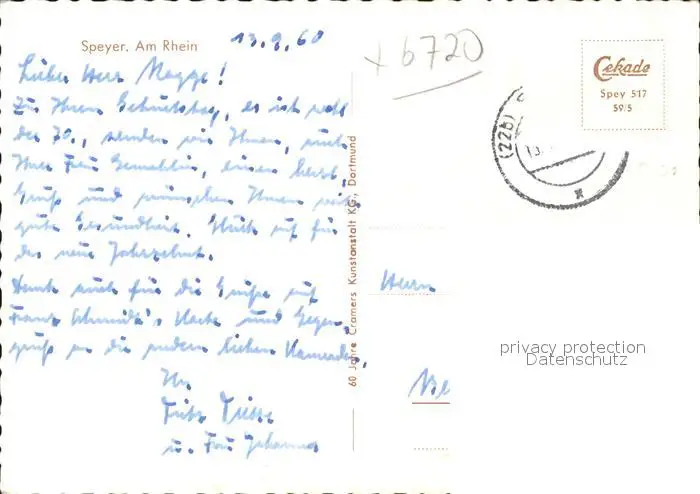 Speyer, Am Rhein
13.9.60
Lieber Herr Nagge!
Zu Ihrem Geburtstag, es ist wohl
der 70., senden wir Ihnen, auch
Ihrer Frau Gemahlin, einen herzl.
Gruß und wünschen Ihnen viel
gute Gesundheit. Glück auf für
das neue Jahrzehnt.
Dank auch für die Grüße auf
Franz Schmidt's Karte und Gegen-
gruß an die andern lieben Kameraden.
Ihr
Fritz
u. Frau Johanna
60 Jahre Cramers Kunstanstalt KG., Dortmund
+ 6720
Cekade
Spey 517
59/5
(22b)
13.
Herrn
privacy protection
Datenschutz